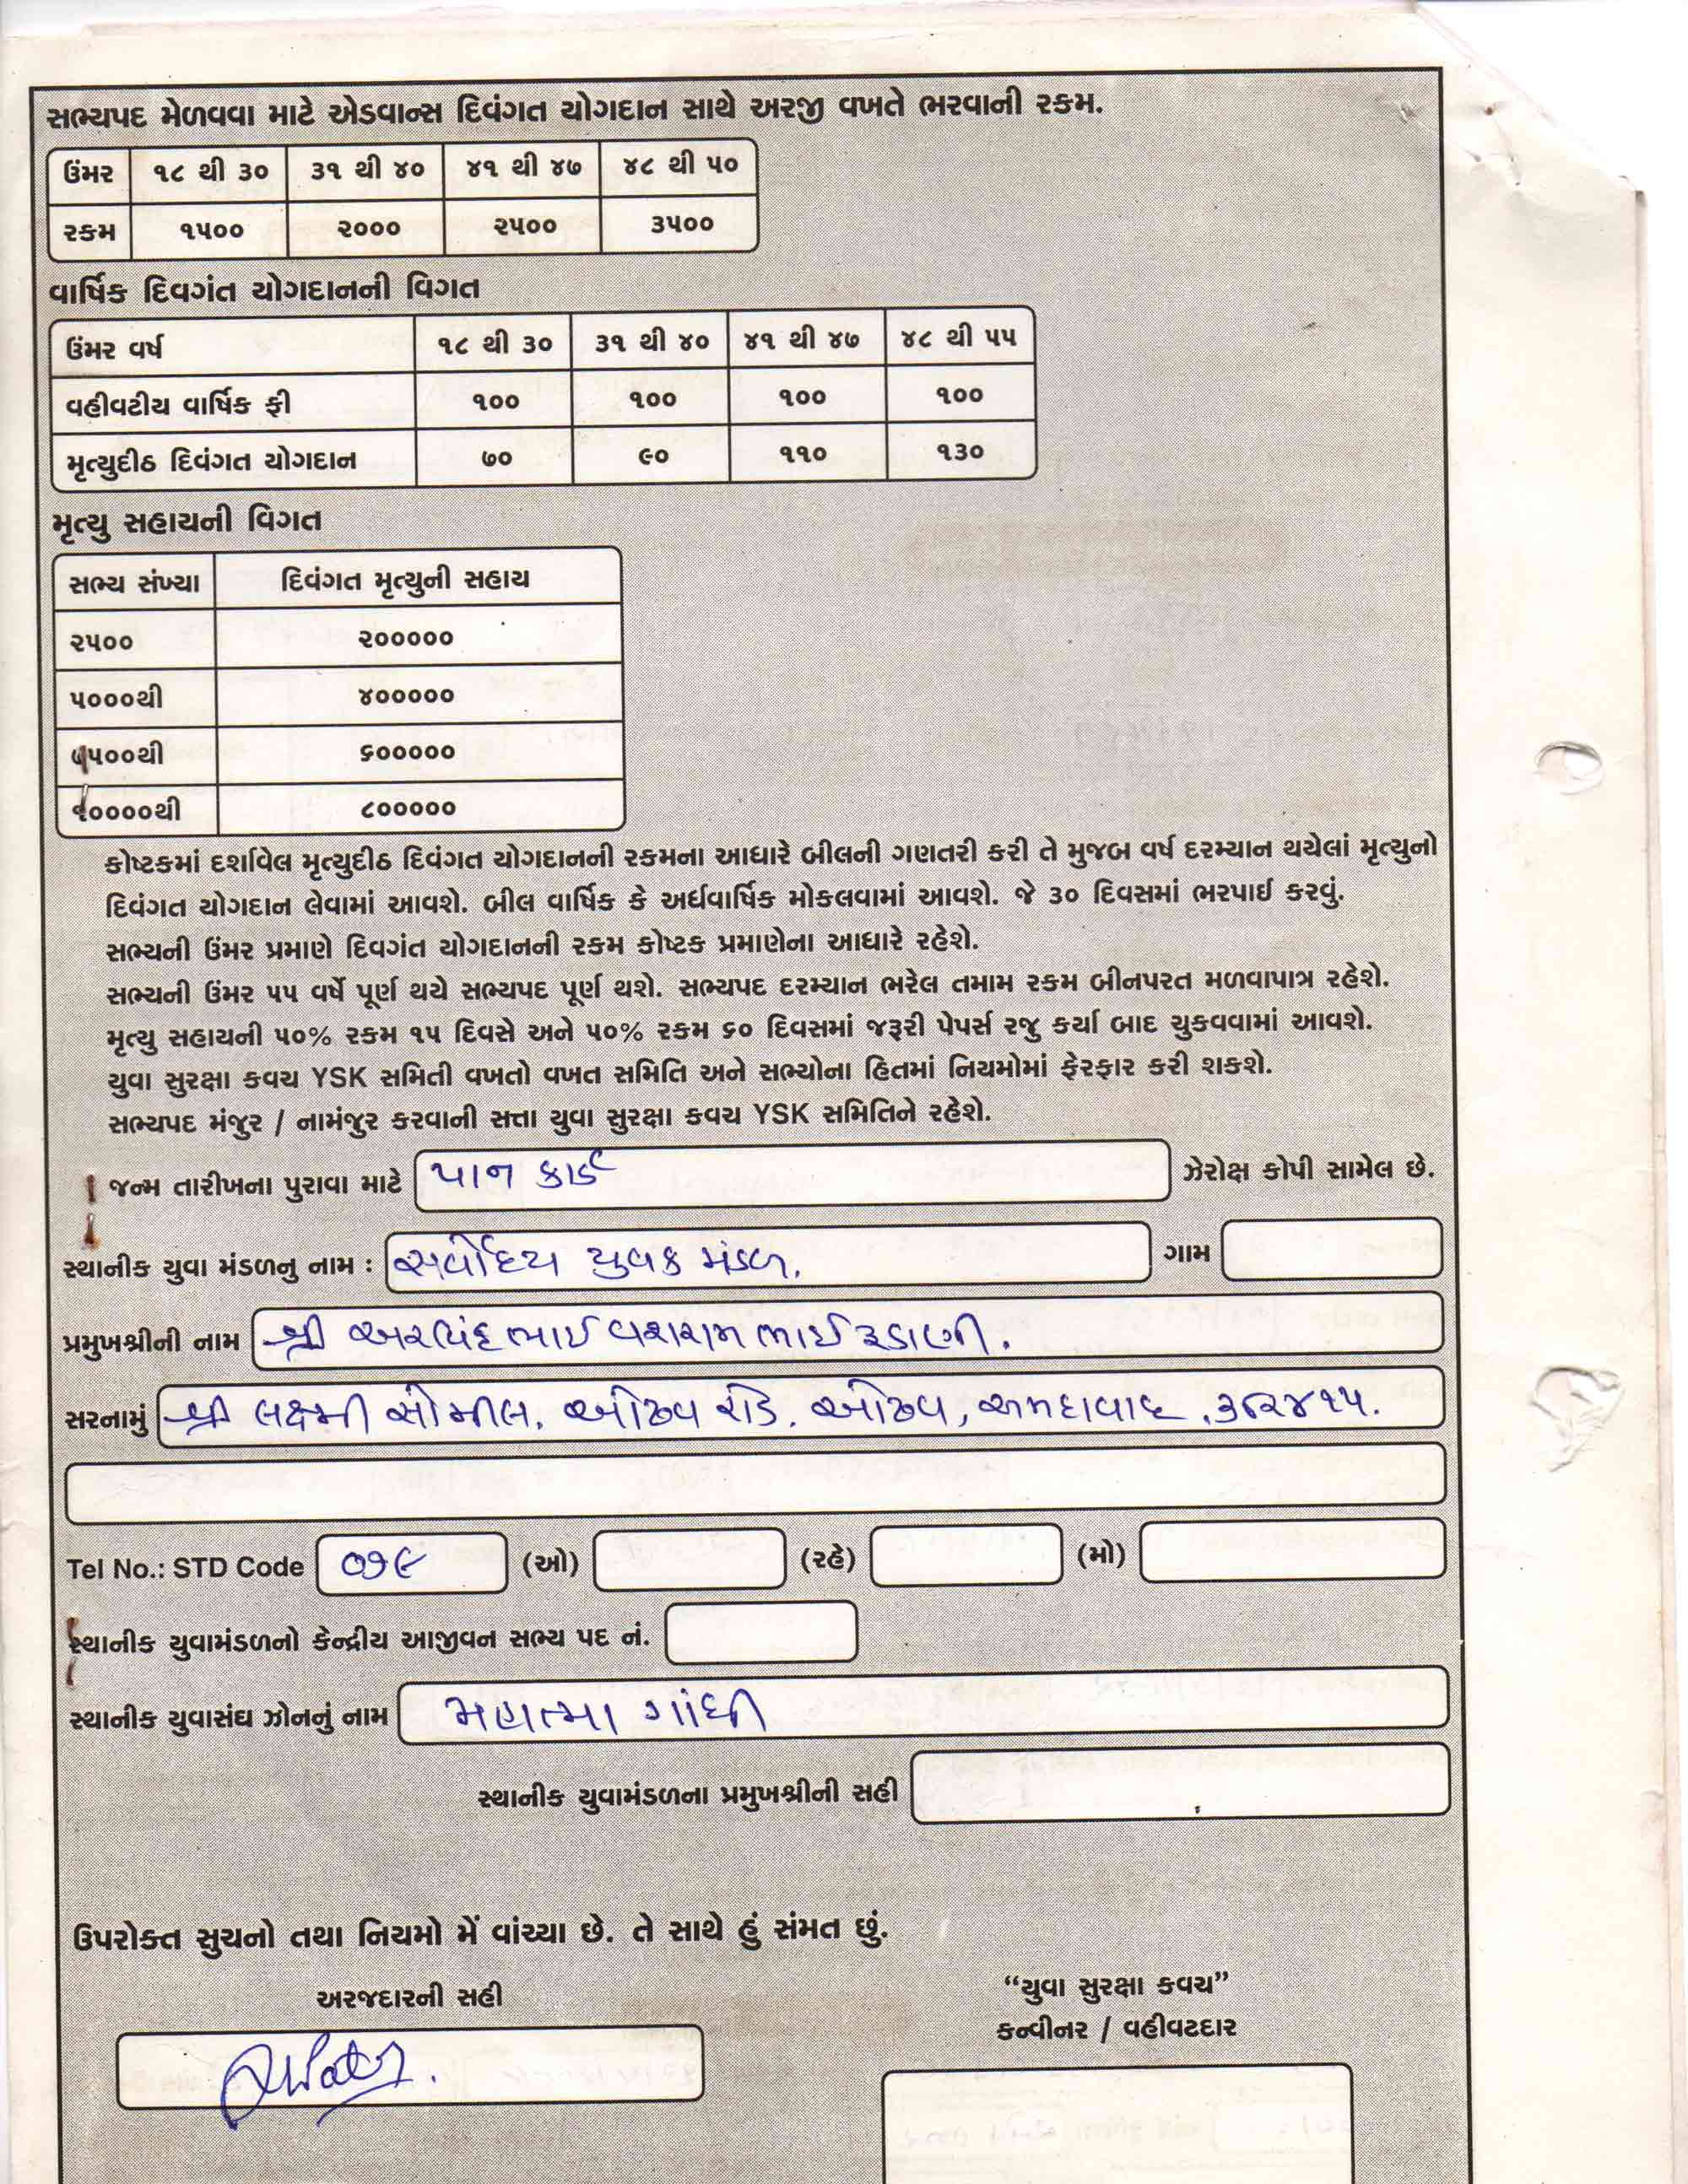 સભ્યપદ મેળવવા માટે એડવાન્સ દિવંગત યોગદાન સાથે અરજી વખતે ભરવાની રકમ.
ઉંમર ૧૮ થી ૩૦ ૩૧ થી ૪૦ ૪૧ થી ૪૭ ૪૮ થી ૫૦
રકમ ૧૫૦૦ ૨૦૦૦ ૨૫૦૦ ૩૫૦૦
વાર્ષિક દિવગંત યોગદાનની વિગત
ઉંમર વર્ષ ૧૮ થી ૩૦ ૩૧ થી ૪૦ ૪૧ થી ૪૭ ૪૮ થી ૫૫
વહીવટીય વાર્ષિક ફી ૧૦૦ ૧૦૦ ૧૦૦ ૧૦૦
મૃત્યુદીઠ દિવંગત યોગદાન ૭૦ ૯૦ ૧૧૦ ૧૩૦
મૃત્યુ સહાયની વિગત
સભ્ય સંખ્યા દિવંગત મૃત્યુની સહાય
૨૫૦૦ ૨૦૦૦૦૦
૫૦૦૦થી ૪૦૦૦૦૦
૭૫૦૦થી ૬૦૦૦૦૦
૧૦૦૦૦થી ૮૦૦૦૦૦
કોષ્ટકમાં દર્શાવેલ મૃત્યુદીઠ દિવંગત યોગદાનની રકમના આધારે બીલની ગણતરી કરી તે મુજબ વર્ષ દરમ્યાન થયેલાં મૃત્યુનો
દિવંગત યોગદાન લેવામાં આવશે. બીલ વાર્ષિક કે અર્ધવાર્ષિક મોકલવામાં આવશે. જે ૩૦ દિવસમાં ભરપાઈ કરવું.
સભ્યની ઉંમર પ્રમાણે દિવગંત યોગદાનની રકમ કોષ્ટક પ્રમાણેના આધારે રહેશે.
સભ્યની ઉંમર ૫૫ વર્ષે પૂર્ણ થયે સભ્યપદ પૂર્ણ થશે. સભ્યપદ દરમ્યાન ભરેલ તમામ રકમ બીનપરત મળવાપાત્ર રહેશે.
મૃત્યુ સહાયની ૫૦% રકમ ૧૫ દિવસે અને ૫૦% રકમ ૬૦ દિવસમાં જરૂરી પેપર્સ રજુ કર્યા બાદ ચુકવવામાં આવશે.
યુવા સુરક્ષા કવચ YSK સમિતી વખતો વખત સમિતિ અને સભ્યોના હિતમાં નિયમોમાં ફેરફાર કરી શકશે.
સભ્યપદ મંજુર / નામંજુર કરવાની સત્તા યુવા સુરક્ષા કવચ YSK સમિતિને રહેશે.
જન્મ તારીખના પુરાવા માટે પાન કાર્ડ ઝેરોક્ષ કોપી સામેલ છે.
સ્થાનીક યુવા મંડળનુ નામ : સર્વોદય યુવક મંડળ. ગામ
પ્રમુખશ્રીની નામ શ્રી અરવિંદભાઈ વશરામભાઈ રૂડાણી.
સરનામું શ્રી લક્ષ્મી સોમીલ. ઓઢવ રોડ. ઓઢવ, અમદાવાદ .૩૮૨૪૧૫.
Tel No.: STD Code ૦૭૯ (ઓ) (રહે) (મો)
સ્થાનીક યુવામંડળનો કેન્દ્રીય આજીવન સભ્ય પદ નં.
સ્થાનીક યુવાસંઘ ઝોનનું નામ મહાત્મા ગાંધી
સ્થાનીક યુવામંડળના પ્રમુખશ્રીની સહી
ઉપરોક્ત સુચનો તથા નિયમો મેં વાંચ્યા છે. તે સાથે હું સંમત છું.
અરજદારની સહી
“યુવા સુરક્ષા કવચ”
કન્વીનર / વહીવટદાર